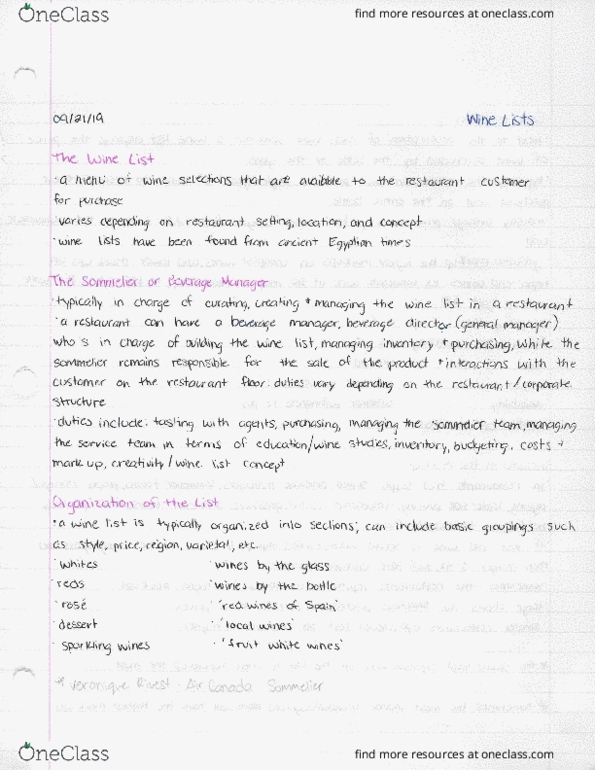 OneClass
find more resources at oneclass.com
09/21/19
Wine Lists
The Wine List
· a menu of wine selections that are avaible to the restaurant customer
for purchase
· varies depending on restaurant setting, location, and concept
· wine lists have been found from ancient Egyptian times
The Sommelier or Beverage Manager
· typically in charge of curating, creating + managing the wine list in a restaurant
· a restaurant can have a beverage manager, beverage director (general manager)
who s in charge of building the wine list, managing inventory + purchasing, while the
sommelier remains responsible for the sale of the product + interactions with the
customer on the restaurant floor. duties vary depending on the restaurant/corporate
structure
· duties include: tasting with agents, purchasing, managing the sommelier team, managing
the service team in terms of education/wine studies, inventory, budgeting, costs +
mark up, creativity/wine list concept
Organization of the List
· a wine list is typically organized into sections; can include basic groupings such
as style, price, region, varietal, etc.
· whites
· wines by the glass
· reds
· wines by the bottle
· rosé
· 'red wines of Spain'
· dessert
· 'local wines'
· sparkling wines
· 'fruit white wines'
* Veronique Rivest - Air Canada Sommelier
OneClass
find more resources at oneclass.com